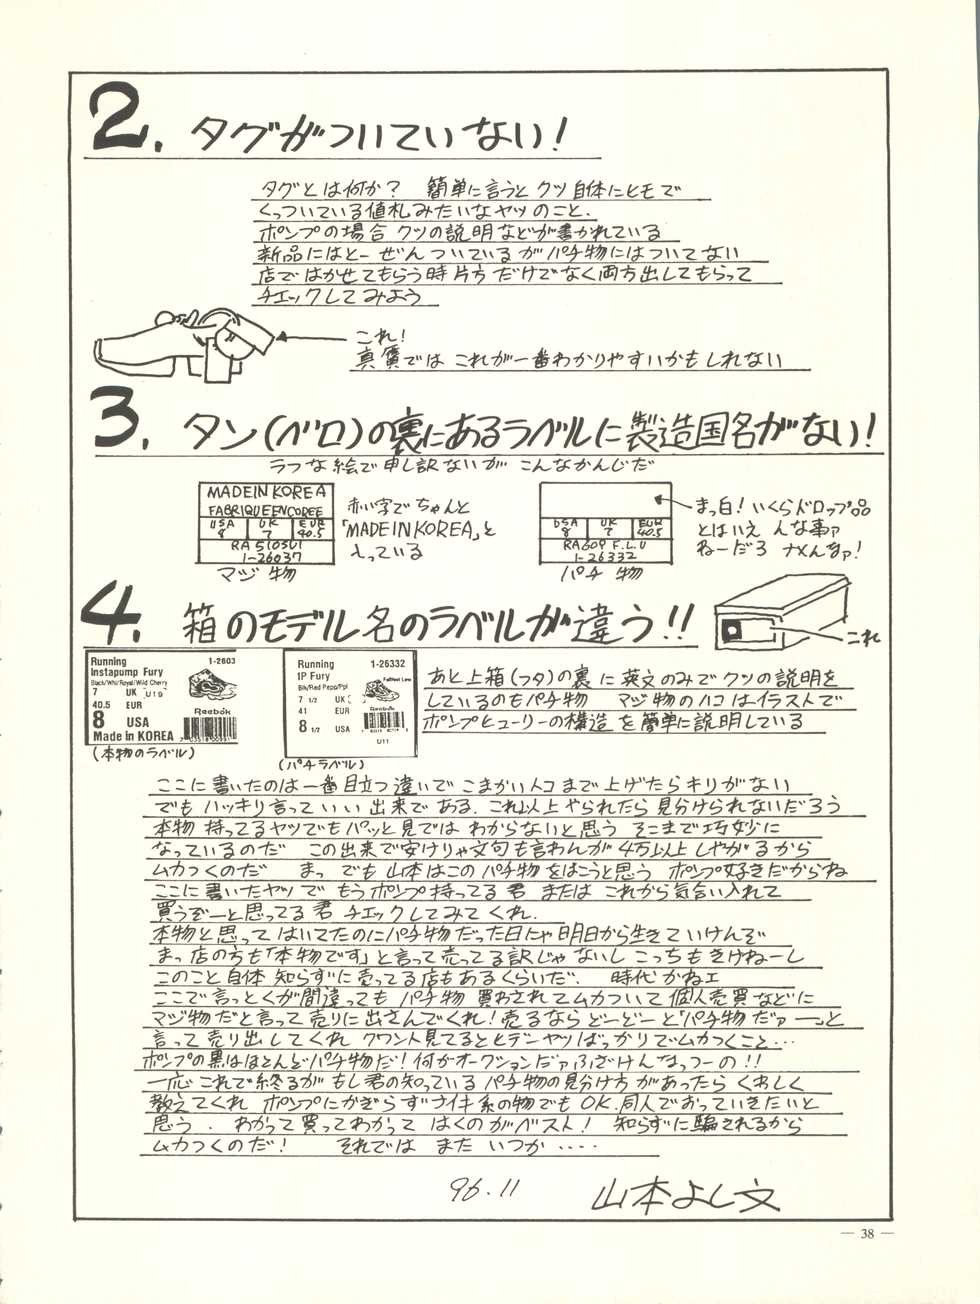 2. タグがついていない!
タグとは何か? 簡単に言うとクツ自体にヒモで
くっついている値札みたいなヤツのこと.
ポンプの場合クツの説明などが書かれている
新品にはとーぜんついているがパチ物にはついてない
店ではかせてもらう時片方だけでなく両方出してもらって
チェックしてみよう
これ!
真贋ではこれが一番わかりやすいかもしれない
3. タン(ベロ)の裏にあるラベルに製造国名がない!
ラフな絵で申し訳ないがこんなかんじだ
MADE IN KOREA
FABRIQUE EN COREE
USA 8
UK 7
EUR 40.5
RA 510501
1-26037
マジ物
赤い字でちゃんと
「MADE IN KOREA」と
入っている
USA 8
UK 7
EUR 40.5
RA609 F.L.U
1-26332
パチ物
まっ白!いくらドロップ品
とはいえ んな事ァ
ねーだろ ナメんなァ!
4. 箱のモデル名のラベルが違う!!
これ
Running
Instapump Fury
Black/Wht/Royal/Wild Cherry
1-2603
7 UK U19
40.5 EUR
8 USA
Made in KOREA
Reebok
(本物のラベル)
Running
IP Fury
Blk/Red Pepp/Ppl
1-26332
7 1/2 UK
41 EUR
8 1/2 USA
Reebok
U11
(パチラベル)
あと上箱(フタ)の裏に英文のみでクツの説明を
しているのもパチ物 マジ物のハコはイラストで
ポンプヒューリーの構造を簡単に説明している
ここに書いたのは一番目立つ違いでこまかいトコまで上げたらキリがない
でもハッキリ言っていい出来である.これ以上やられたら見分けられないだろう
本物持ってるヤツでもパッと見ではわからないと思う そこまで巧妙に
なっているのだ この出来で安けりゃ文句も言わんが4万以上しやがるから
ムカつくのだ まっ でも山本はこのパチ物をはこうと思う ポンプ好きだからね
ここに書いたヤツでもうポンプ持ってる君 または これから気合い入れて
買うぞーと思ってる君 チェックしてみてくれ.
本物と思ってはいてたのにパチ物だった日にゃ明日から生きていけんぞ
まっ店の方も「本物です」と言って売ってる訳じゃないしこっちもきけねーし
このこと自体知らずに売ってる店もあるくらいだ. 時代かねェ
ここで言っとくが間違ってもパチ物買わされてムカついて個人売買などに
マジ物だと言って売りに出さんでくれ!売るならどーどーと「パチ物だァー」と
言って売り出してくれ クワント見てるとヒデーヤツばっかりでムカつくこと…
ポンプの黒はほとんどパチ物だ!何がオークションだァふざけんなっつーの!!
一応これで終るがもし君の知っているパチ物の見分け方があったらくわしく
教えてくれ ポンプにかぎらずナイキ系の物でもOK.同人でおっていきたいと
思う. わかって買ってわかってはくのがベスト! 知らずに騙されるから
ムカつくのだ! それでは また いつか ‥‥
96.11 山本よし文
— 38 —